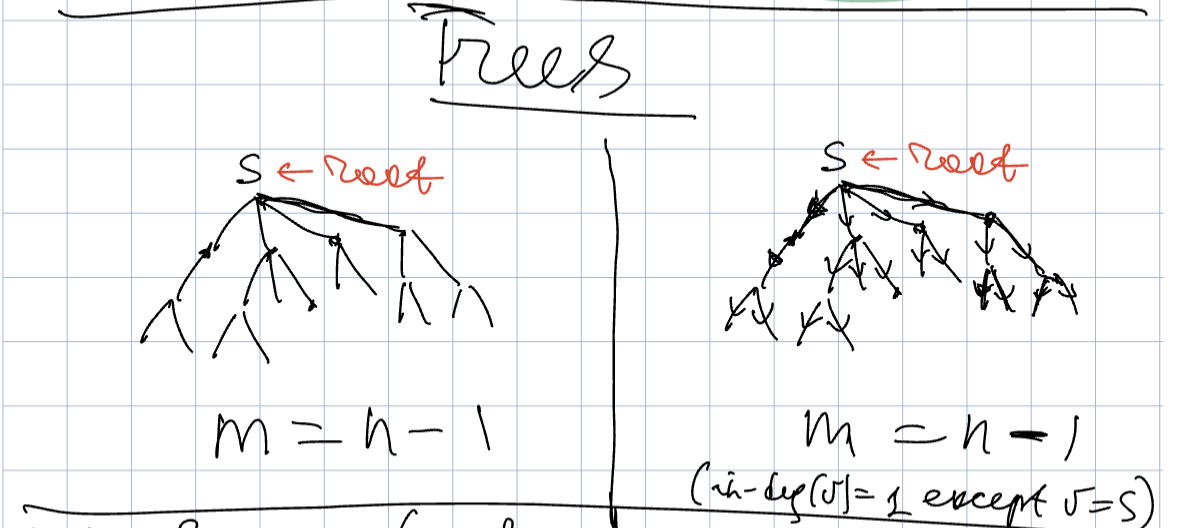 Trees
S ← Root
S ← Root
m = n - 1
m = n - 1
(in-deg(v) = 1 except v = S)